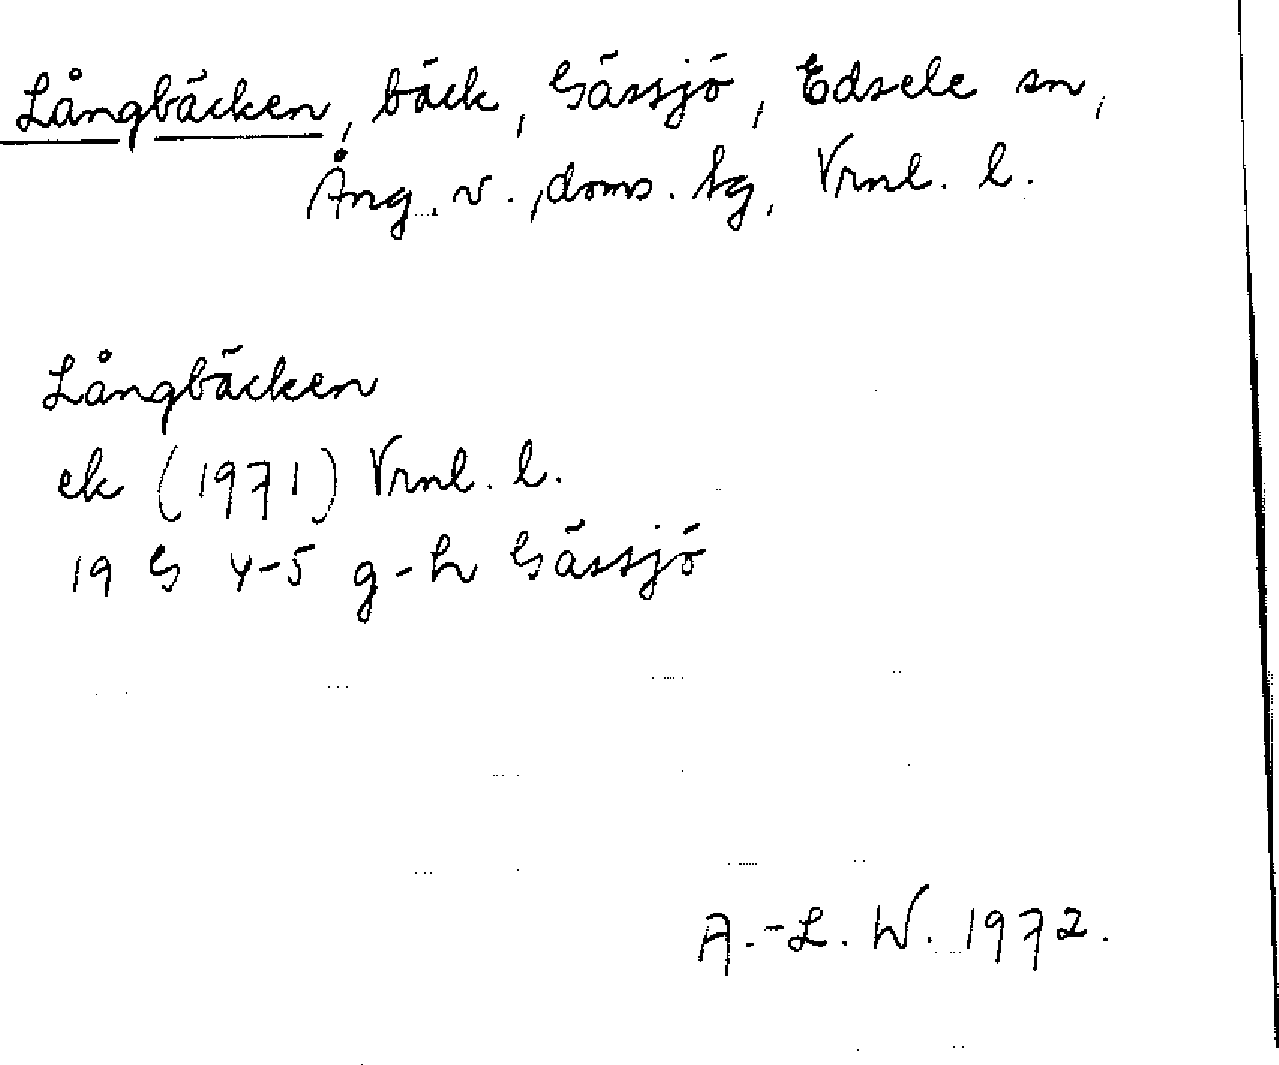 Långbäcken, bäck, Gåssjö, Edsele sn,
Ång. v., doms. tg, Vrnl. l.
Långbäcken
ek (1971) Vrnl. l.
19 G 4-5 g-h Gåssjö
A.-L. W. 1972.